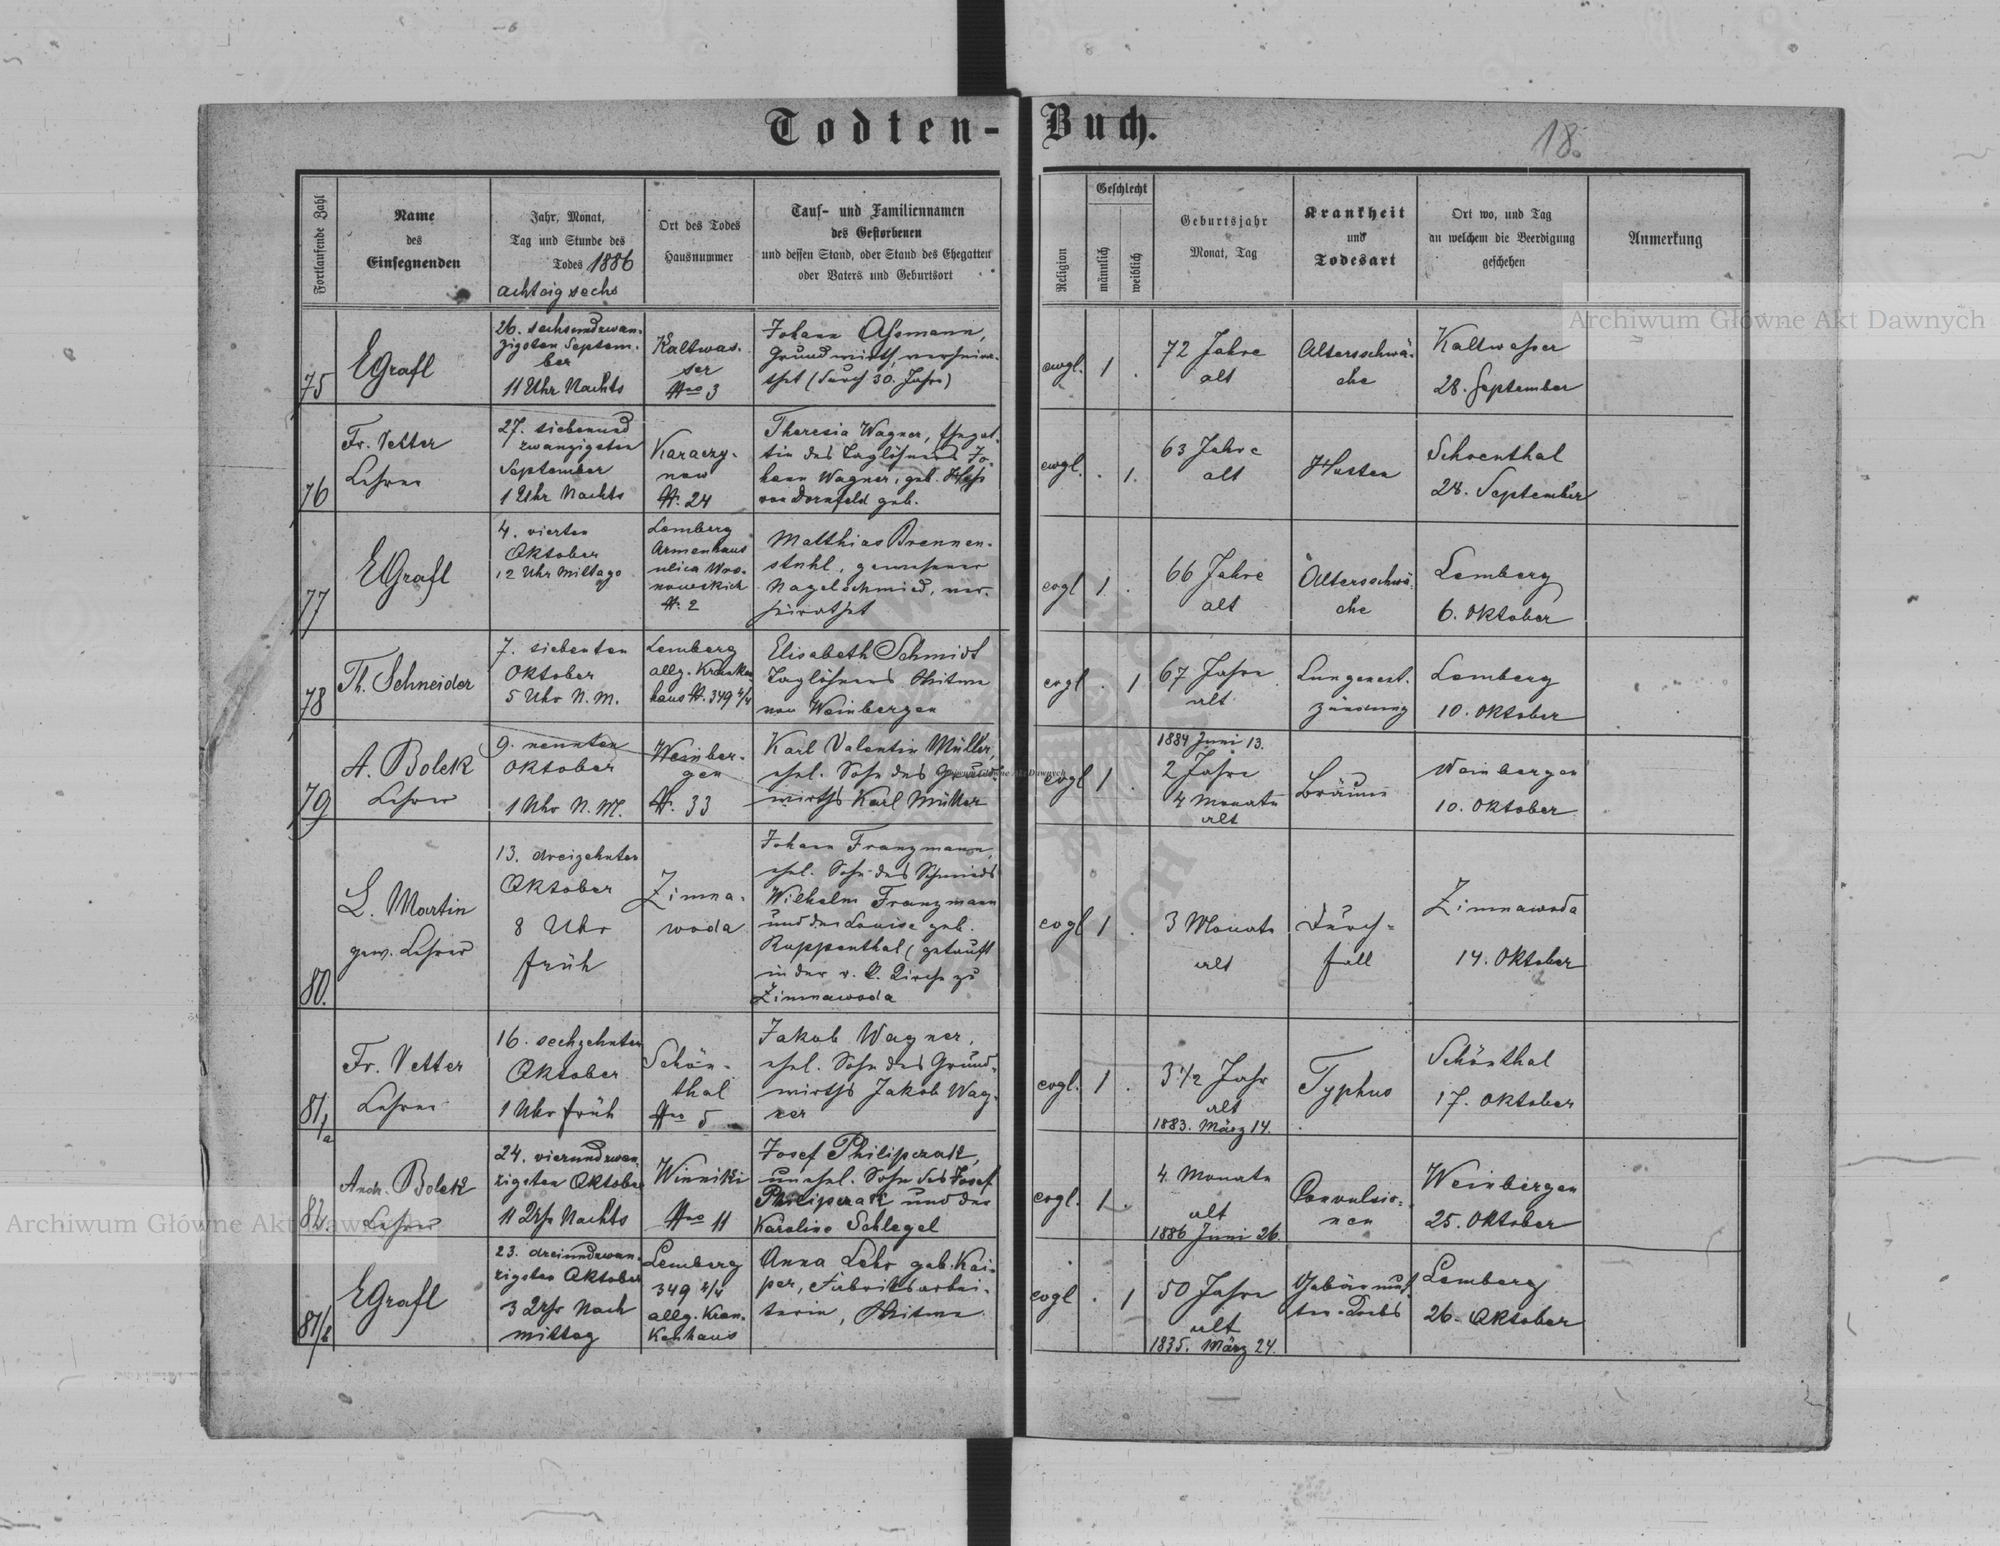 Todten-Buch.
18.
Fortlaufende Zahl
Name
des
Einsegnenden
Jahr, Monat,
Tag und Stunde des
Todes 1886
achtzig sechs
Ort des Todes
Hausnummer
Tauf- und Familiennamen
des Gestorbenen
und dessen Stand, oder Stand des Ehegatten
oder Vaters und Geburtsort
Religion
Geschlecht
männlich
weiblich
Geburtsjahr
Monat, Tag
Krankheit
und
Todesart
Ort wo, und Tag
an welchem die Beerdigung
geschehen
Anmerkung
75
EGrafl
26. sechsundzwan-
zigsten Septem-
ber
11 Uhr Nachts
Kaltwas-
ser
Nro 3
Johann Aßmann,
Grundwirth, verheira-
thet (durch 30. Jahre)
evgl.
1
.
72 Jahre
alt
Altersschwä-
che
Kaltwasser
28. September
76
Fr. Vetter
Lehrer
27. siebenund
zwanzigsten
September
1 Uhr Nachts
Karaczy-
now
N. 24
Theresia Wagner, Ehegat-
tin des Taglöhners Jo-
hann Wagner, geb. Heß
von Dornfeld geb.
evgl.
.
1.
63 Jahre
alt
Husten
Schoenthal
28. September
77
EGrafl
4. vierten
Oktober
12 Uhr Mittags
Lemberg
Armenhaus
ulica Wro-
nowskich
N. 2
Matthias Brennen-
stuhl, gewesener
Nagelschmied, ver-
heirathet
evgl
1
.
66 Jahre
alt
Altersschwä-
che
Lemberg
6. Oktober
78
Th. Schneider
7. siebenten
Oktober
5 Uhr N. M.
Lemberg
allg. Kranken-
haus N. 349 4/4
Elisabeth Schmidt
Taglöhners Witwe
von Weinbergen
evgl
.
1
67 Jahre
alt
Lungenent-
zündung
Lemberg
10. Oktober
79
A. Bolek
Lehrer
9. neunten
Oktober
1 Uhr N. M.
Weinber-
gen
N. 33
Karl Valentin Müller,
ehel. Sohn des Grund-
wirths Karl Müller
evgl
1
.
1884 Juni 13.
2 Jahre
4 Monate
alt
Bräune
Weinbergen
10. Oktober
80.
L. Martin
gew. Lehrer
13. dreizehnten
Oktober
8 Uhr
früh
Zimna-
woda
Johann Franzmann,
ehel. Sohn des Schmieds
Wilhelm Franzmann
und der Louise geb.
Ruppenthal (getauft
in der r. k. Kirche zu
Zimnawoda
evgl
1
.
3 Monate
alt
Durch-
fall
Zimnawoda
14. Oktober
81/a
Fr. Vetter
Lehrer
16. sechzehnten
Oktober
1 Uhr früh
Schön-
thal
Nro 5
Jakob Wagner,
ehel. Sohn des Grund-
wirths Jakob Wag-
ner
evgl.
1
.
3 1/2 Jahr
alt
1883. März 14.
Typhus
Schönthal
17. Oktober
82.
Andr. Bolek
Lehrer
24. vierundzwan-
zigsten Oktober
11 Uhr Nachts
Winniki
Nro 11
Josef Philipczak,
unehel. Sohn des Josef
Philipczak und der
Karoline Schlegel
evgl.
1.
.
4 Monate
alt
1886 Juni 26.
Convulsio-
nen
Weinbergen
25. Oktober
81/b
EGrafl
23. dreiundzwan-
zigsten Oktober
3 Uhr Nach
mittag
Lemberg
349 4/4
allg. Kran-
kenhaus
Anna Lehr geb. Kai-
per, Fabriksarbei-
terin, Witwe
evgl
.
1
50 Jahre
alt
1835. März 24.
Gebärmut-
ter-Krebs
Lemberg
26. Oktober
Archiwum Główne Akt Dawnych
Archiwum Główne Akt Dawnych
Archiwum Główne Akt Dawnych